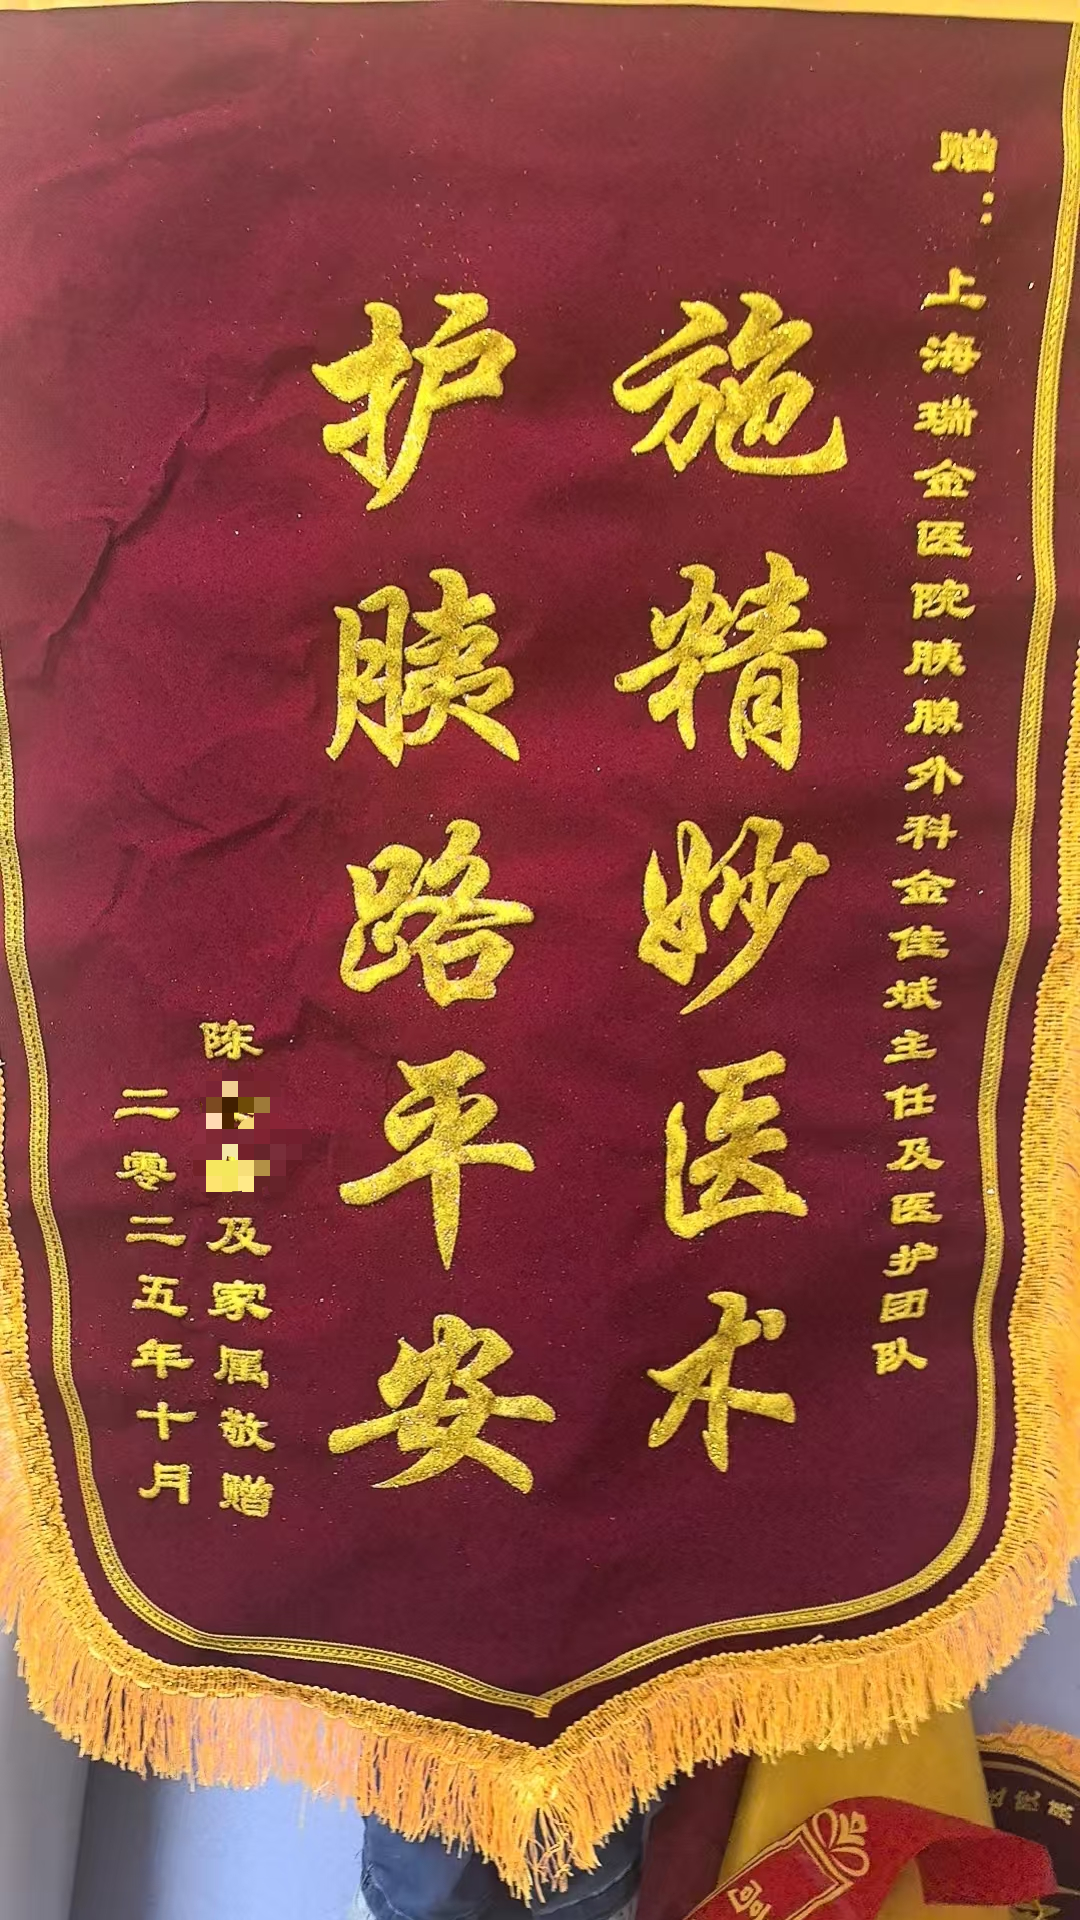 赠：上海瑞金医院胰腺外科金佳斌主任及医护团队
施精妙医术
护胰路平安
陈
及家属敬赠
二零二五年十月
医院